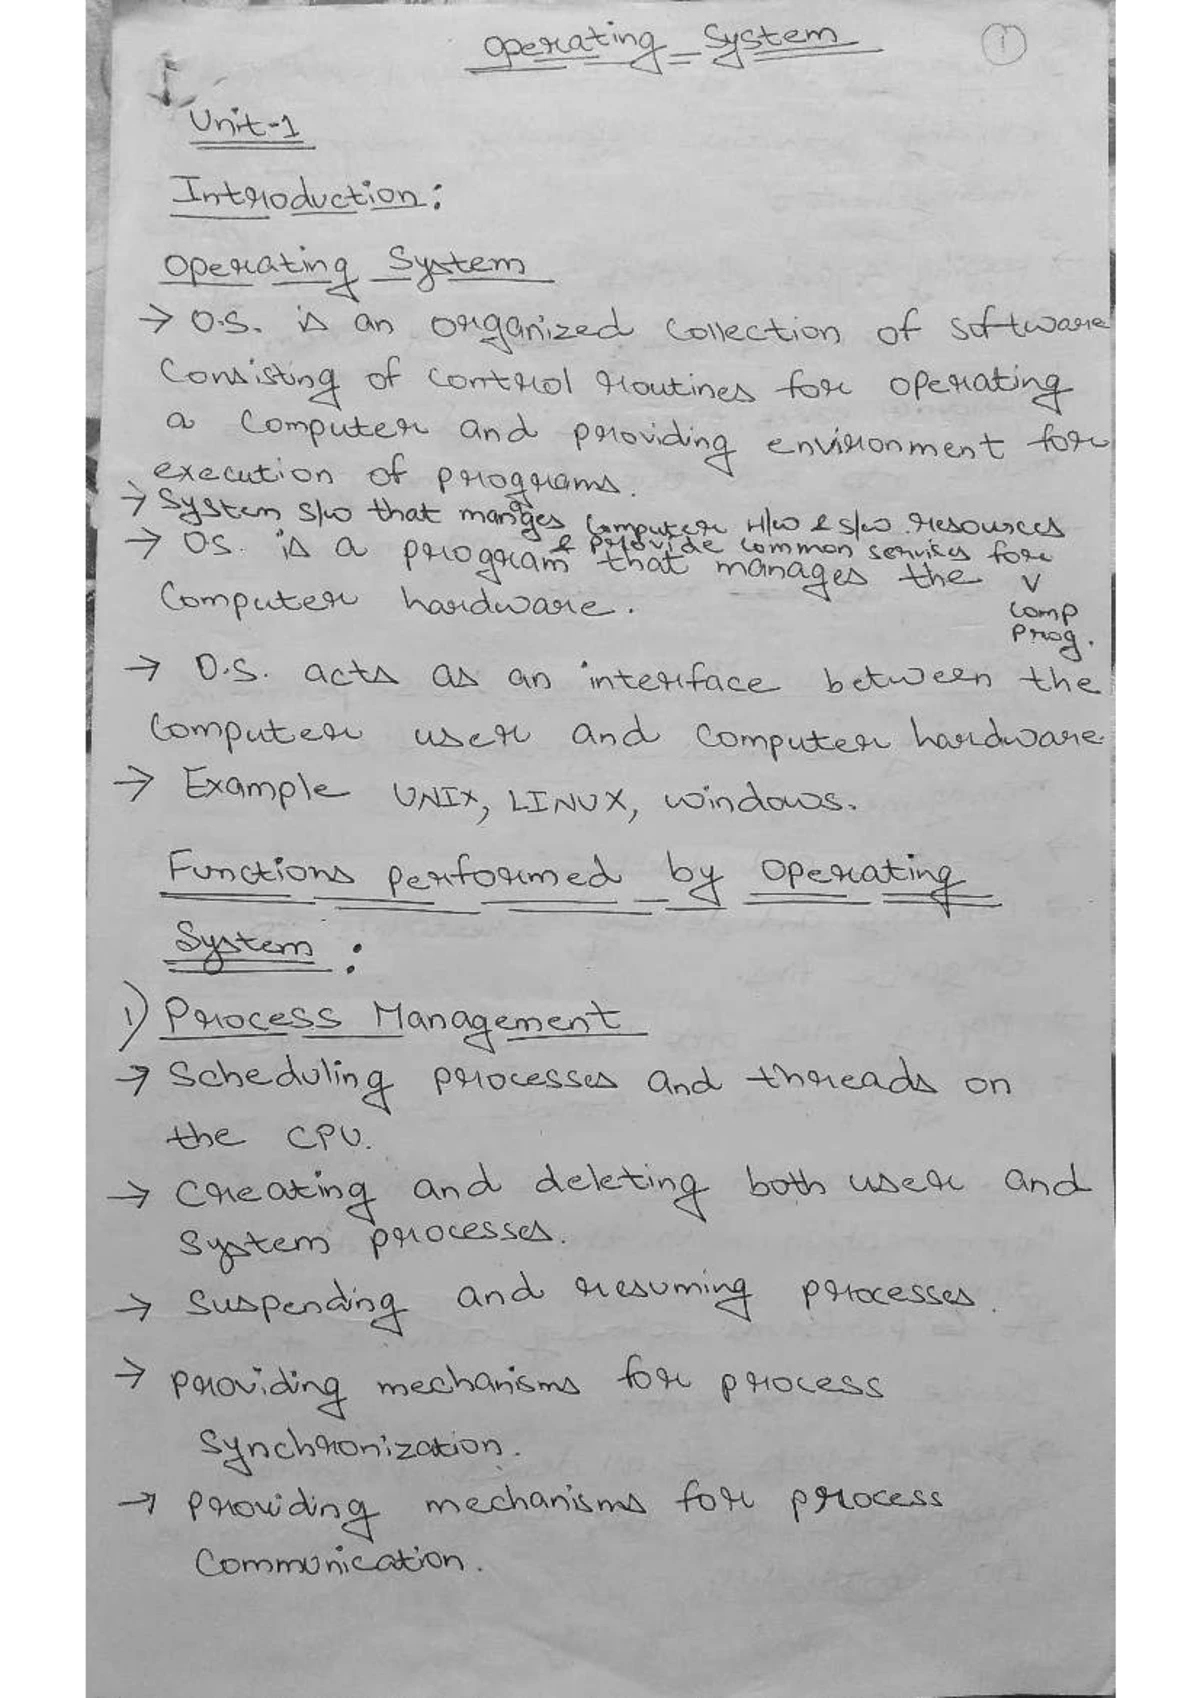 Operating System
1
Unit-1
Introduction:
Operating System
→ O.S. is an organized collection of software
consisting of control routines for operating
a computer and providing environment for
execution of programs.
→ System S/w that manges Computer H/w & S/w resources
& provide common servics for
comp
prog.
→ OS. is a program that manages the
Computer hardware.
→ O.S. acts as an interface between the
computer user and computer hardware.
→ Example UNIX, LINUX, windows.
Functions performed by Operating
System :
1) Process Management
→ Scheduling processes and threads on
the CPU.
→ Creating and deleting both user and
System processes.
→ Suspending and resuming processes.
→ providing mechanisms for process
synchronization.
→ providing mechanisms for process
communication.